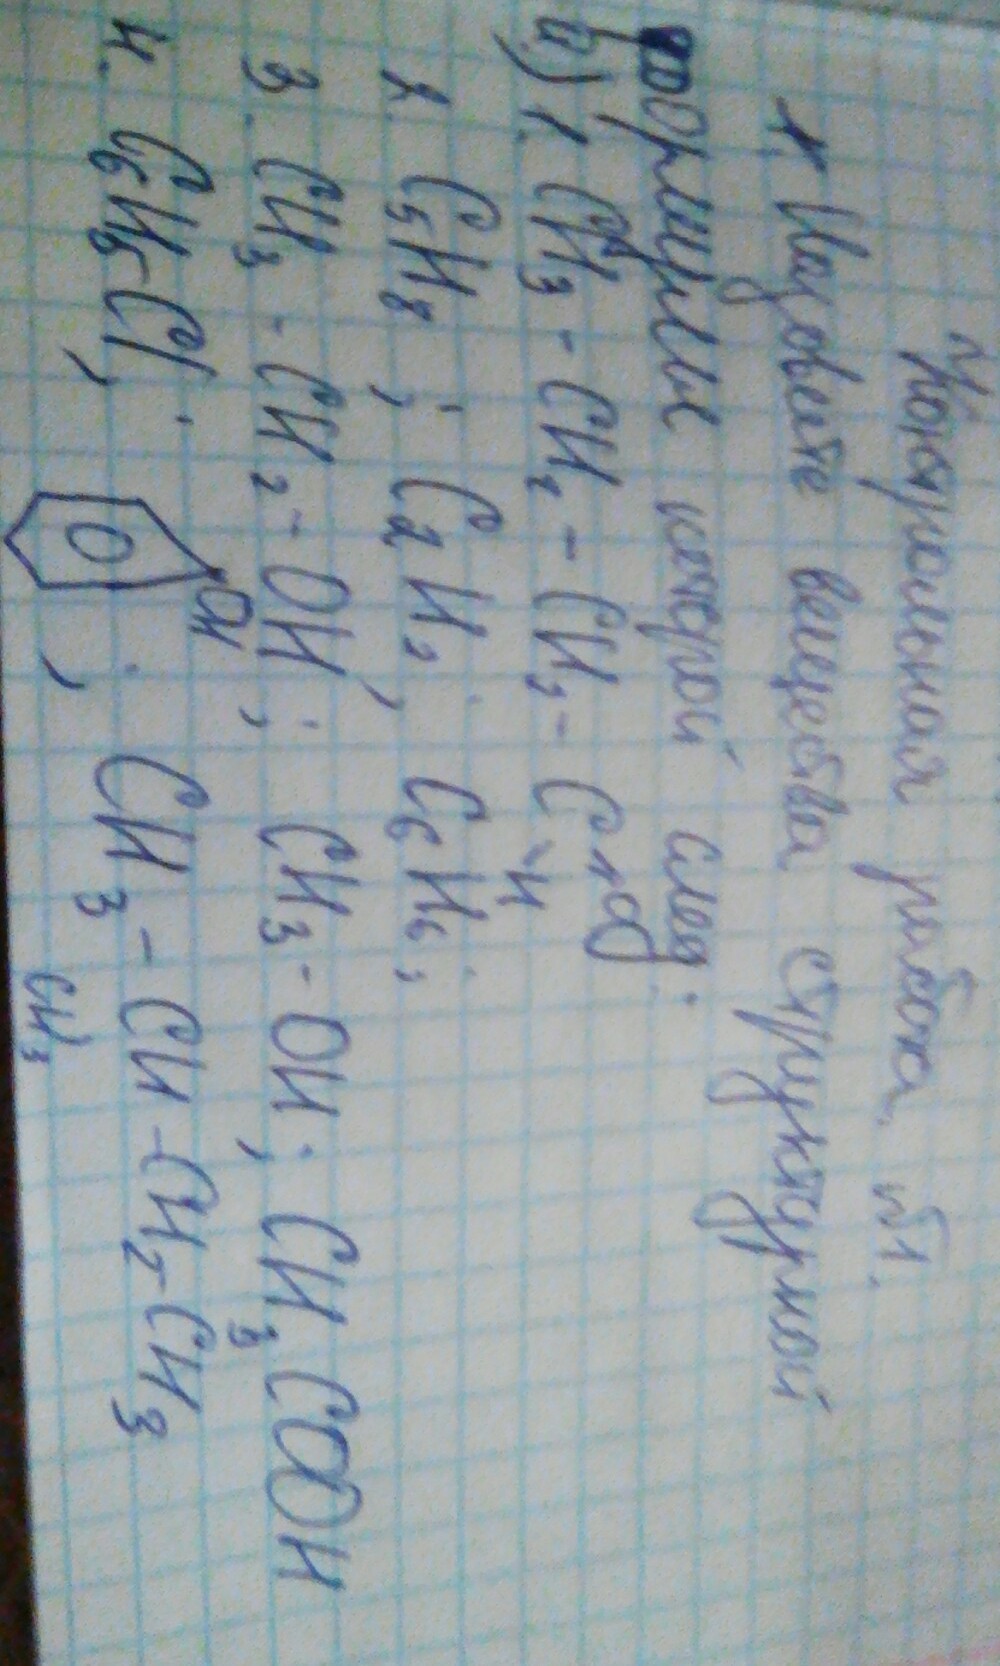 "Контрольная работа №1.
1. Назовите вещества структурной
формулы которой след.
а) 1. CH3 - CH2 - CH2 - C O H
2. C5H8 ; C2H2 ; C6H6 ;
3. CH3 - CH2 - OH ; CH3 - OH ; CH3COOH
4. C6H5-Cl ; OH ; CH3 - CH - CH2 - CH3
CH3